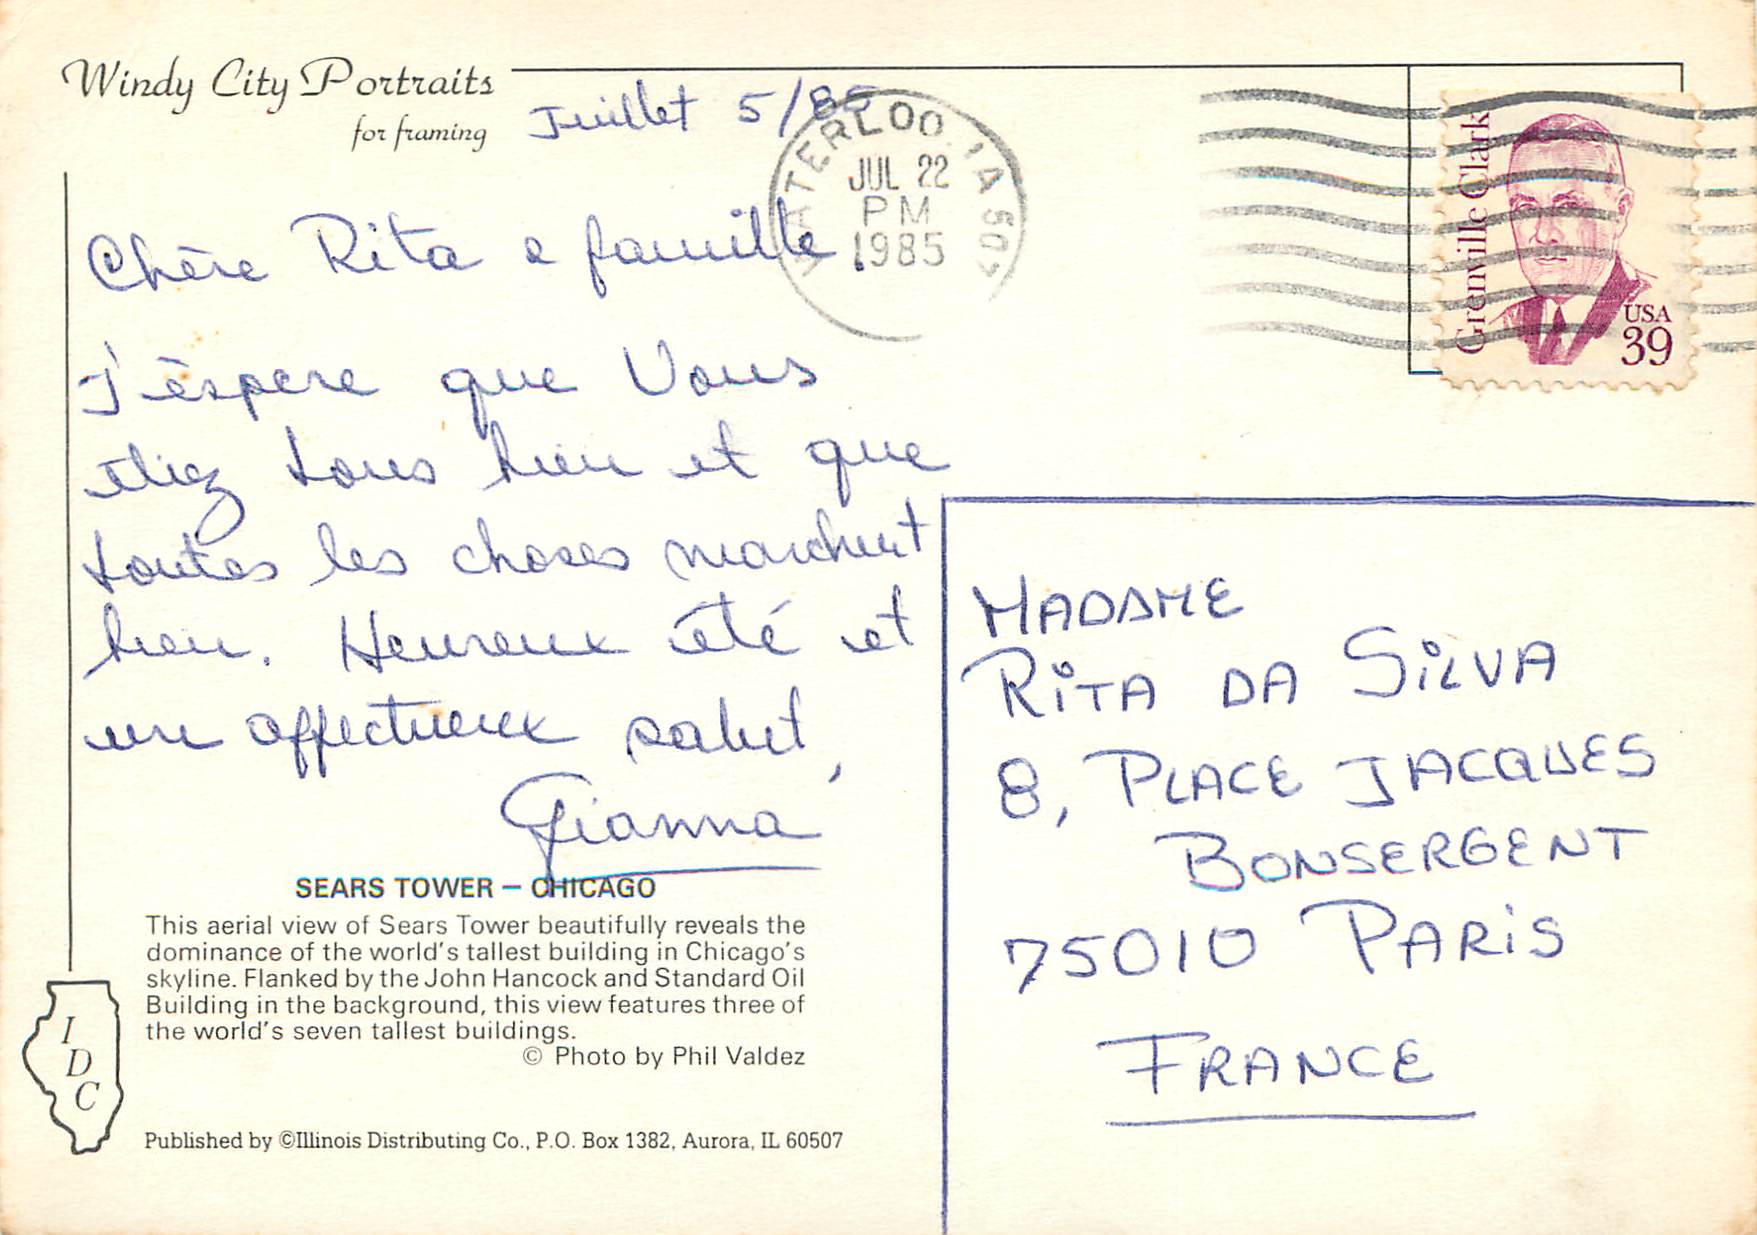 Windy City Portraits
for framing
Juillet 5/85
WATERLOO, IA 507
JUL 22
PM
1985
Grenville Clark
USA
39
Chère Rita e famille
J'èspere que Vous
etiez tous bien et que
toutes les choses marchent
bien. Heureux été et
un affectueux salut,
Gianna
SEARS TOWER – CHICAGO
This aerial view of Sears Tower beautifully reveals the
dominance of the world's tallest building in Chicago's
skyline. Flanked by the John Hancock and Standard Oil
Building in the background, this view features three of
the world's seven tallest buildings.
© Photo by Phil Valdez
IDC
Published by ©Illinois Distributing Co., P.O. Box 1382, Aurora, IL 60507
MADAME
RITA DA SILVA
8, PLACE JACQUES
BONSERGENT
75010 PARIS
FRANCE